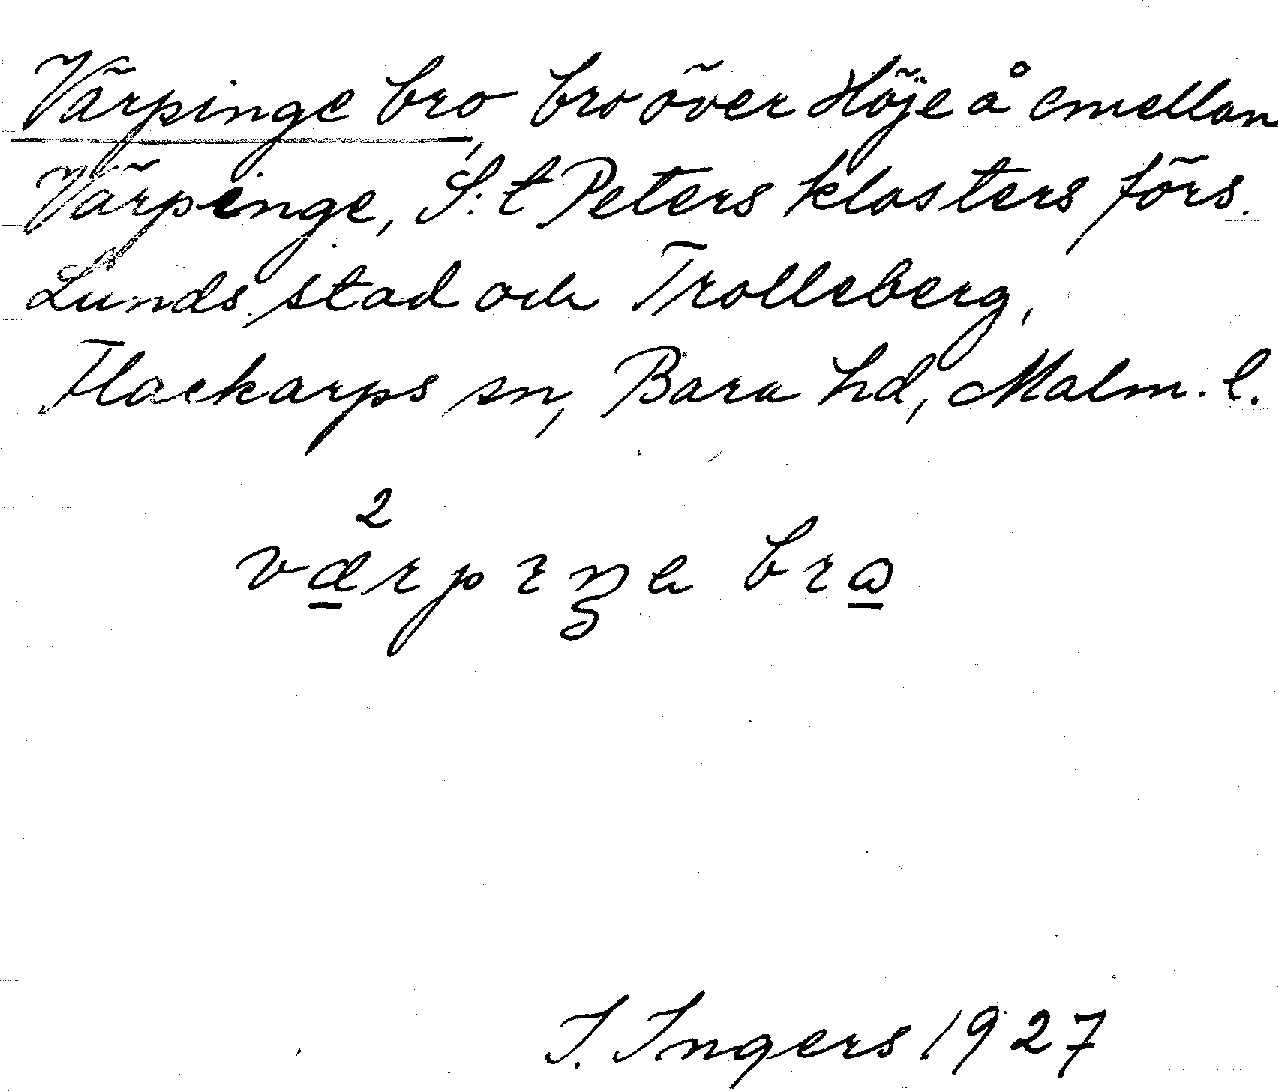 Värpinge bro, bro över Höje å emellan
Värpinge, S:t Peters klosters förs.
Lunds stad och Trolleberg,
Flackarps sn, Bara hd, Malm. l.
2
værpɪŋa bra
I. Ingers 1927